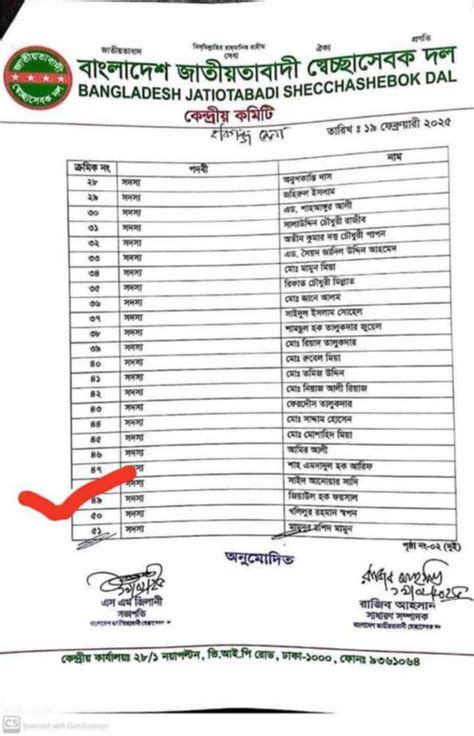 জাতীয়তাবাদ বিসমিল্লাহির রাহমানির রাহীম ঐক্য প্রগতি
সেবা
বাংলাদেশ জাতীয়তাবাদী স্বেচ্ছাসেবক দল
BANGLADESH JATIOTABADI SHECCHASHEBOK DAL
কেন্দ্রীয় কমিটি
হবিগঞ্জ জেলা
তারিখ : ১৯ ফেব্রুয়ারী ২০২৫
ক্রমিক নং পদবী নাম
২৮ সদস্য অনুপকান্তি দাস
২৯ সদস্য জহিরুল ইসলাম
৩০ সদস্য এড. শাহআঙ্গুর আলী
৩১ সদস্য সালাউদ্দিন চৌধুরী রাজীব
৩২ সদস্য অতীন কুমার দত্ত চৌধুরী পাপন
৩৩ সদস্য এড. সৈয়দ জাদিল উদ্দিন আহমেদ
৩৪ সদস্য মোঃ মামুন মিয়া
৩৫ সদস্য রিফাত চৌধুরী মিল্লাত
৩৬ সদস্য মোঃ জানে আলম
৩৭ সদস্য সাইদুল ইসলাম সোহেল
৩৮ সদস্য শামছুল হক তালুকদার জুয়েল
৩৯ সদস্য মোঃ রিয়াদ তালুকদার
৪০ সদস্য মোঃ রুবেল মিয়া
৪১ সদস্য মোঃ তমিজ উদ্দিন
৪২ সদস্য মোঃ নিয়াজ আলী রিয়াজ
৪৩ সদস্য ফেরদৌস তালুকদার
৪৪ সদস্য মোঃ সাদ্দাম হোসেন
৪৫ সদস্য মোঃ মোশাহিদ মিয়া
৪৬ সদস্য আমির আলী
৪৭ সদস্য শাহ এমদাদুল হক আরিফ
সদস্য সাইদ আনোয়ার সাদি
৪৯ সদস্য জিয়াউল হক ফয়সাল
৫০ সদস্য খলিলুর রহমান স্বপন
৫১ সদস্য মামুনুর রশিদ মামুন
পৃষ্ঠা নং-০২ (দুই)
অনুমোদিত
এস এম জিলানী
সভাপতি
বাংলাদেশ জাতীয়তাবাদী স্বেচ্ছাসেবক দল
রাজিব আহসান
সাধারণ সম্পাদক
বাংলাদেশ জাতীয়তাবাদী স্বেচ্ছাসেবক দল
কেন্দ্রীয় কার্যালয়ঃ ২৮/১ নয়াপল্টন, ভি.আই.পি রোড, ঢাকা-১০০০, ফোনঃ ৯৩৬১০৬৪
CS Scanned with CamScanner